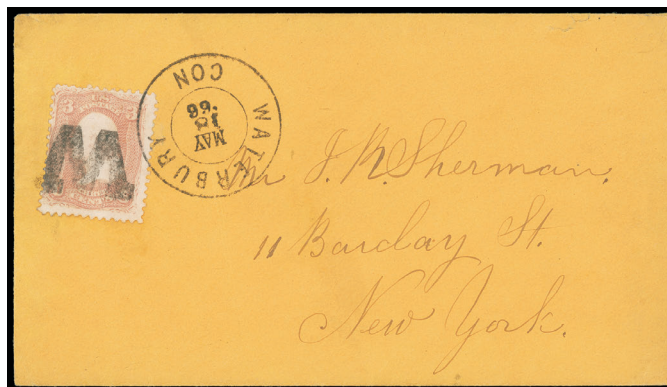 3 3
W
WATERBURY CON
MAY
18
66
Mr J. N. Sherman.
11 Barclay St.
New York.